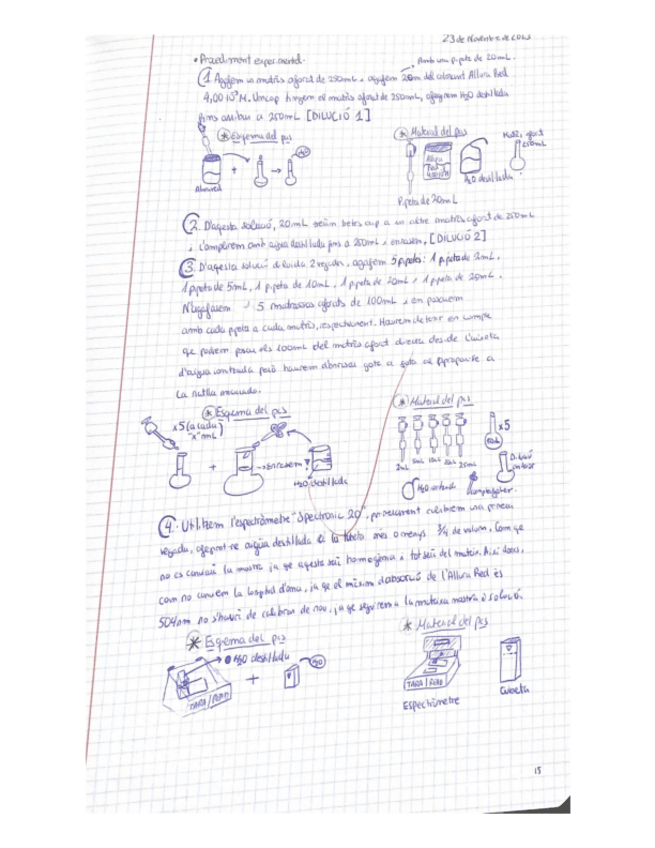 23 de Novembre de
• Procediment experimental.
Amb una pipeta de 20mL.
1. Agafem un matràs aforat de 250mL, i agafem 20m del colorant Allura Red
4,00 10 M. Un cop tinguem el matràs aforat de 250mL, afegirem H2O destil·lada
fins arribar a 250mL [DILUCIÓ 1]
* Esquema del pas
* Material del pas
Matràs aforat
250mL
H2O
Allura
Red
Allura red
H2O destil·lada
Pipeta de 20mL
2. D'aquesta solució, 20mL seran a un altre matràs aforat de 250mL
i l'omplirem amb aigua destil·lada fins a 250mL i enrasem. [DILUCIÓ 2]
3. D'aquesta solució diluida 2 vegades, agafem 5 pipetes: 1 pipeta de 2mL,
1 pipeta de 5mL, 1 pipeta de 10mL, 1 pipeta de 20mL i 1 pipeta de
N'agafarem 5 matrassos aforats de 100mL i en posarem
amb cada pipeta a cada matràs, respectivament. Haurem de tenir en compte
que podrem posar els 100mL del matràs aforat directa des de
d'aigua però haurem d'enrasar gota a gota al apropar-te a
la ratlla
* Esquema del pas
* Material del pas
x5 (a cada
"x" mL)
+
→ Enrasem
H2O destil·lada
x5
100mL
2mL 5mL 10mL 20mL 25mL
H2O
Comptagotes.
4. Utilitzem l'espectròmetre "Spectronic 20", primerament calibrem una primera
vegada, afegint-ne aigua destil·lada a la cubeta més o menys 3/4 de volum. Com que
no es canviarà la mostra ja que aquesta serà homogènia i tot serà del mateix. Així doncs,
com no canviem la longitud d'ona, ja que el màxim d'absorció de l'Allura Red és
504nm no s'haurà de calibrar de nou, ja que seguirem a la mateixa mostra o solució.
* Esquema del pas
* Material del pas
H2O destil·lada
+
H2O
TARA/READ
TARA/READ
Espectròmetre
Cubeta
15